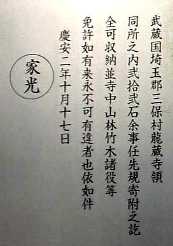 武蔵国埼玉郡三保村龍蔵寺領
同所之内弐拾弐石余事任先規寄附之訖
全可収納並寺中山林竹木諸役等
免許如有来永不可有違者也依如件
慶安二年十月十七日
家光